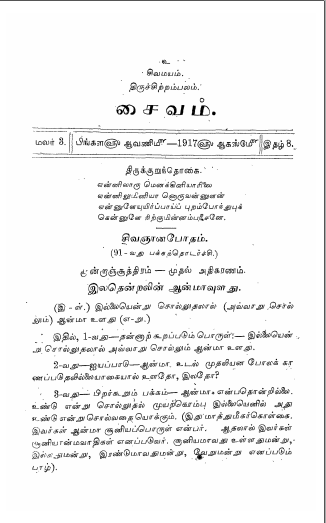 உ
சிவமயம்.
திருச்சிற்றம்பலம்.
சைவம்.
மலர் 3. பிங்களஹு ஆவணிமீ—1917ஹு ஆகஸ்ட்மீ இதழ் 8.
திருக்குறுந்தொகை.
என்னிலாரு மெனக்கினியாரிலை
என்னிலும்மினியா னொருவனுளன்
என்னுளேயுயிர்ப்பாய்ப் புறம்போந்துபுக்
கென்னுளே நிற்குமின்னம்பரீசனே.
சிவஞானபோதம்.
(91-வது பக்கத்தொடர்ச்சி.)
மூன்றாஞ்சூத்திரம் — முதல் அதிகரணம்.
இலதென்றலின் ஆன்மாவுளது.
(இ-ள்.) இல்லையென்று சொல்லுதலால் (அவ்வாறு சொல்
லும்) ஆன்மா உளது (எ-று.)
இதில், 1-வது—தன்னாற் கூறப்படும் பொருள்:— இல்லையென்
று சொல்லுதலால் அவ்வாறு சொல்லும் ஆன்மா உளது.
2-வது—ஐயப்பாடு—ஆன்மா. உடல் முதலியன போலக் கா
ணப்படுதலில்லையாகையால் உளதோ, இலதோ?
3-வது— பிறர்கூறும் பக்கம்— ஆன்மா என்பதொன்றில்லை.
உண்டு என்று சொல்லுதல் முயற்கொம்பு இல்லையெனில் அது
உண்டு என்று சொல்வதையொக்கும். (இது மாத்துமீகர்கொள்கை.
இவர்கள் ஆன்மா சூனியப்பொருள் என்பர். ஆதலால் இவர்கள்
சூனியான்மவாதிகள் எனப்படுவர். சூனியமாவது உள்ளதுமன்று,
இல்லதுமன்று, இரண்டுமாவதுமன்று, வேறுமன்று எனப்படும்
பாழ்).